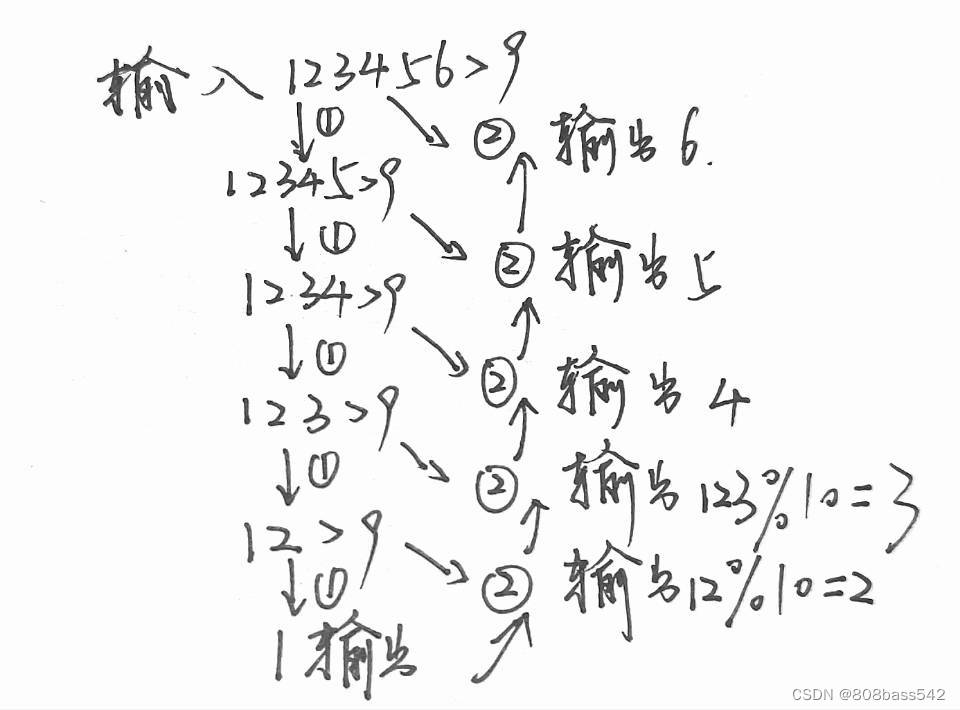 输入 123456>9
① ② 输出6.
12345>9
① ② 输出5
1234>9
① ② 输出4
123>9
① ② 输出123%10=3
12>9
① ② 输出12%10=2
1输出
CSDN @808bass542